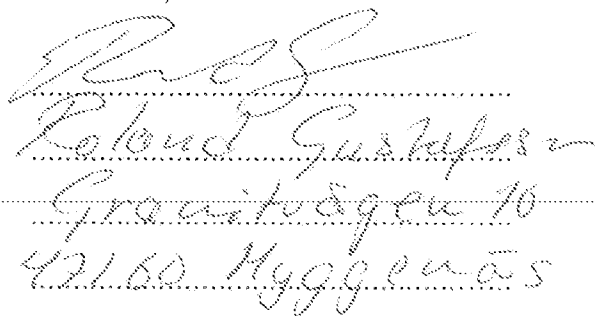 Roland Gustafsson
Granitvägen 10
47160 Myggenäs